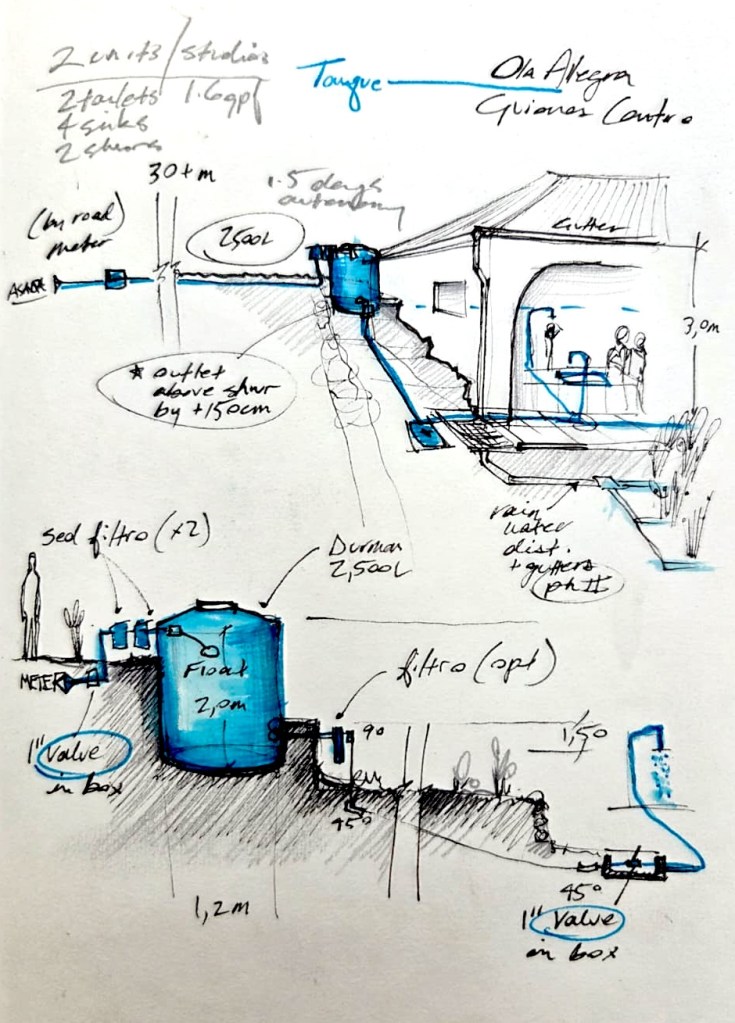 2 units/studios
2 toilets 1.6gpf
4 sinks
2 showrs
Tanque
Ola Alegra
Guiones Centro
30+m
1.5 days
autonomy
(by road)
meter
2500L
Gutter
3,0m
* outlet
above shwr
by +150cm
rain
water
dist.
+ gutters
ph II
sed filtro (x2)
Durman
2,500L
Float
2,0m
filtro (opt)
METER
1" Valve
in box
90
1,50
45°
1,2m
45°
1" Valve
in box